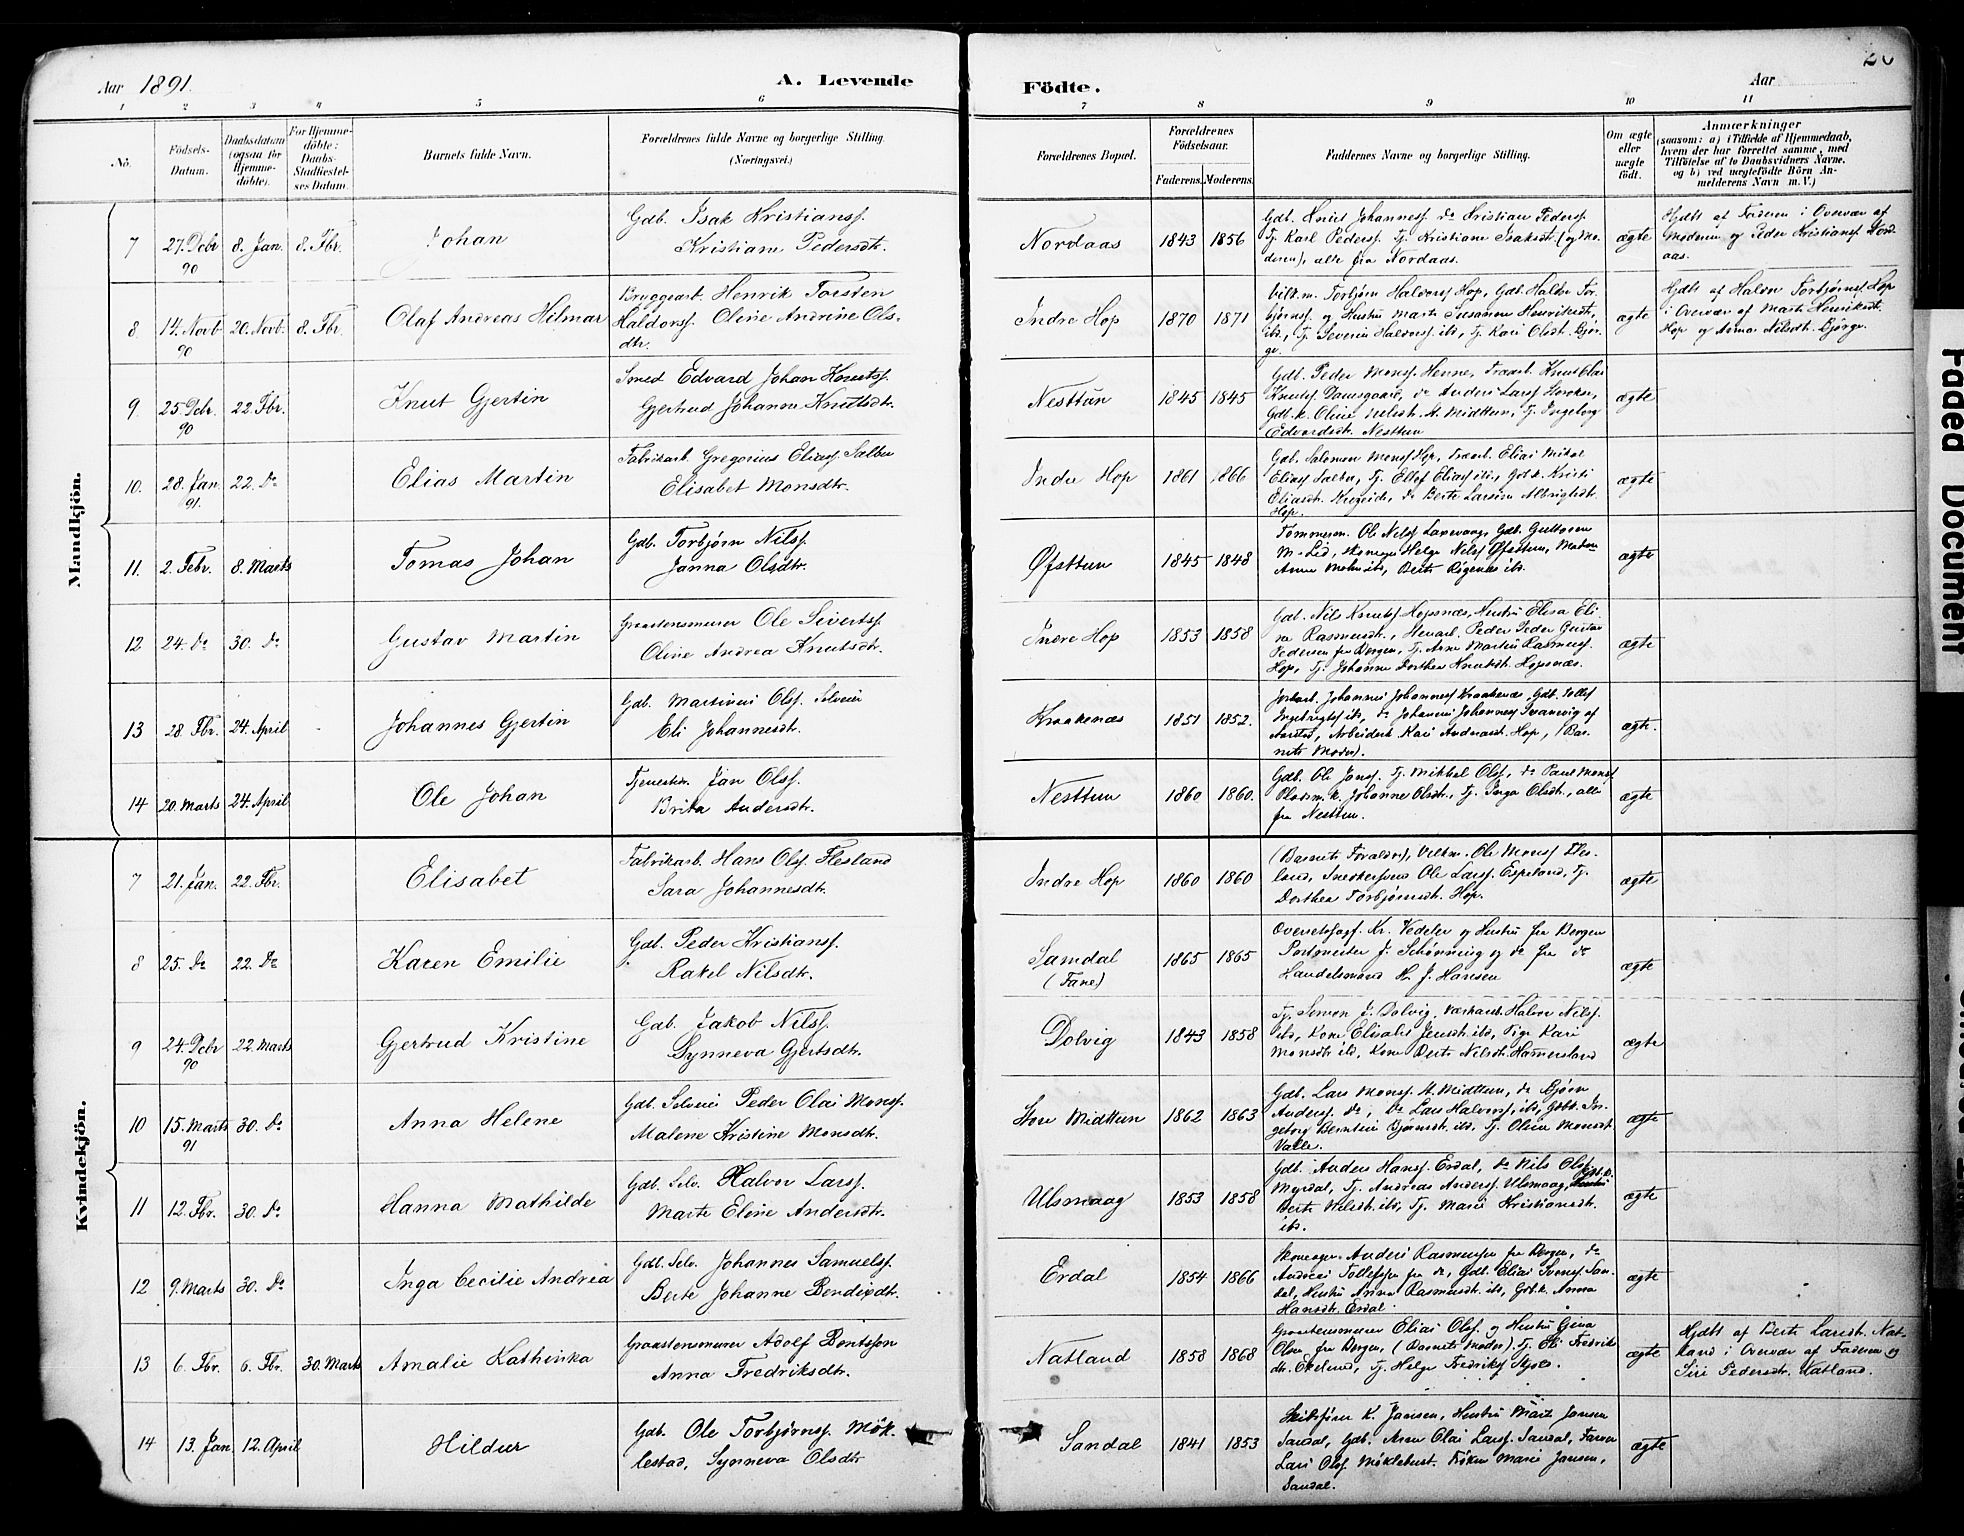 Aar 1891.
A. Levende
Födte.
Aar
26
1 2 3 4 5 6 7 8 9 10 11
No.
Födsels-
Datum.
Daabsdatum
(ogsaa for
Hjemme-
döbte).
For Hjemme-
döbte:
Daabs-
Stadfæstel-
ses Datum.
Barnets fulde Navn.
Forældrenes fulde Navne og borgerlige Stilling.
(Næringsvei.)
Forældrenes Bopæl.
Forældrenes
Födselsaar.
Faderens. Moderens.
Faddernes Navne og borgerlige Stilling.
Om ægte
eller
uægte
födt.
Anmærkninger
(saasom: a) i Tilfælde af Hjemmedaab,
hvem der har forrettet samme, med
Tilföielse af to Daabsvidners Navne,
og b) ved uægtefödte Börn An-
melderens Navn m. V.)
Mandkjön.
7 27. Dcbr 90 8. Jan. 8. Fbr. Johan
Gdb. Isak Kristianss.
Kristiane Pedersdtr.
Nordaas 1843 1856
Gdb. Knut Johanness. do Kristian Pederss.
Tj. Karl Pederss. Tj. Kristiane Isaksdt. (og Mo-
deren), alle fra Nordaas.
ægte
Hjdbt af Faderen i Overvær af
Moderen og Peder Kristianss. Nord-
aas.
8 14. Novb 90 20. Novb. 8. Fbr. Olaf Andreas Hilmar
Bryggearb. Henrik Torsten
Haldorss. Oline Andrine Ols-
dtr.
Indre Hop 1870 1871
Vilk.m. Torbjørn Haldorss Hop, Gdb. Halvor Tor-
bjørnss. og Hustru Marta Susanne Henriksdt,
ibd., Tj. Severin Haldorss ibd, Tj. Kari Olsdt. Bjør-
ge.
ægte
Hjdbt af Halvor Torbjørnss. Hop
i Overvær af Marta Henriksdt.
Hop og Anna Nilsdt. Bjørge.
9. 25. Dcbr. 90 22. Fbr. Knut Gjertin
Smed Edvard Johan Knutss.
Gjertrud Johanne Knutsdtr.
Nesttun 1845 1845
Gdb. Peder Monss. Henne,
Knutss.
Gdb.k. Oline Nilsdt. St. Midttun, Tj. Ingeborg
Edvardsdt. Nesttun
ægte
10. 28. Jan. 91. 22. Do Elias Martin
Fabrikarb. Gregorius Eliass. Sælbu
Elisabet Monsdtr.
Indre Hop 1861 1866
Gdb. Salomon Monss Hop, Elias Mikal
Eliass Sælbu, Tj. Ellef Eliass ibd, Gdb.k. Kristi
Eliasdt. do Berte Larsine Albrigtsdt.
Hop.
ægte
11. 2. Febr. 8. Marts Tomas Johan
Gdb. Torbjørn Nilss.
Janna Olsdtr.
Øfsttun 1845 1848
Tømmerm. Ole Nilss Gdb. Guttorm
Helge Nilss Øfsttun,
Anna
ægte
12 24. Do 30. Do Gustav Martin
Graastensmurer Ole Sivertss.
Oline Andrea Knutsdtr.
Indre Hop 1853 1858
Gdb. Nils Knutss Hopsnæs, Hustru Elisa Eli-
na Rasmusdt., Peder Gustav
Pedersen fra Bergen, Tj. Arne Martin Rasmuss.
Hop, Tj. Johanne Dorthea Knutsdt. Hopsnæs.
ægte
13 28 Fbr. 24. April Johannes Gjertin
Gdb. Martinus Olss. Selveier
Eli Johannesdtr.
Kraakenæs 1851 1852.
Johannes Johanness Kraakenæs, Gdb. Tollef
Ingebrigtss ibd, do Johannes Johanness Svanevig af
Aarstad, Arbeidersk Kari Andersdt. Hop, (Bar-
nets Moder).
ægte.
14 20. Marts 24. April Ole Johan
Tjenestek. Jan Olss.
Brita Andersdtr.
Nesttun 1860 1860.
Gdb. Ole Janss. Tj. Mikkel Olss, do Paul Monss
Pladsm.k. Johanne Olsdt., Tj. Inga Olsdt., alle
fra Nesttun.
ægte
Kvindekjön.
7 21. Jan. 22. Fbr. Elisabet
Fabrikarb. Hans Olss. Flesland
Sara Johannesdtr.
Indre Hop 1860 1860
(Barnets Forældre), Vilkm. Ole Monss Fles-
land, Ole Larss. Espeland, Tj.
Dorthea Torbjørnsdt. Hop.
ægte
8 25. Do 22. Do Karen Emilie
Gdb. Peder Kristianss.
Rakel Nilsdtr.
Samdal
(Fane)
1865 1865
Overretssagf. Kr. Vedeler og Hustru fra Bergen
Postmester J. Schønning og do fra do
Handelsmand H. J. Hansen
ægte
9 24. Dcbr 90 22. Marts Gjertrud Kristine
Gdb. Jakob Nilss.
Synneva Gjertsdtr.
Dolvig 1843 1858
Tj. Simon J. Dolvig, Halvor Nilss.
ibd, Kone Elisabet Jensdt. ibd, Pige Kari
Monsdt ibd, Kone Berte Nilsdt. Hamersland
ægte
10 15. Marts 91 30. Do Anna Helene
Gdb. Selveier Peder Olai Monss.
Malene Kristine Monsdtr.
Store Midttun 1862 1863
Gdb. Lars Monss. St. Midttun, do Bjørn
Anderss. do, do Lars Halvorss ibd, Gdbk. In-
geborg Berntine Bjørnsdt. ibd, Tj. Oline Monsdt.
Valle.
ægte
11 12. Fbr. 30. Do Hanna Mathilde
Gdb. Selv. Halvor Larss.
Marta Eline Andersdtr.
Ulsmaag 1853 1858
Gdb. Anders Hanss. Erdal, do Nils Olss.
Myrdal, Tj. Andreas Anderss. Ulsmaag, Gdb.k.
Berte Nilsdt. ibd, Tj. Marie Kristiansdt.
ibd.
ægte
12 9. Marts 30. Do Inga Cecilie Andrea
Gdb. Selv. Johannes Samuelss.
Berte Johanne Bendixdt.
Erdal 1854 1866
Skomager Anders Rasmussen fra Bergen, do
Andreas Tollefsen fra do, Gdb. Elias Svenss. San-
dal, Hustru Anna Rasmusdt. ibd, Gdb.k. Anna
Hansdt. Erdal.
ægte
13 6. Fbr. 6. Fbr. 30. Marts Amalie Kathinka
Graastensmurer Adolf Bentsson
Anna Fredriksdtr.
Natland 1858 1868
Graastensmurer Elias Olss. og Hustru Gina
Olsen fra Bergen, (Barnets Moder), Tj. Eli Fredriks-
dt. Ekelund, Tj. Helge Fredrikss
ægte
Hjdbt af Berte Larsdt. Nat-
land i Overvær af Faderen og
Siri Pedersdt. Natland.
14 13. Jan. 12. April Hildur
Gdb. Ole Torbjørnss. Møk-
lestad, Synneva Olsdtr
Sandal 1841 1853
Skibsfører K. Jansen, Hustru Marit Jansen
Sandal, Gdb. Arne Olai Larss. Sandal,
Lars Olss. Møklebust. Frøken Marie Jansen,
Sandal.
ægte
Faded Document